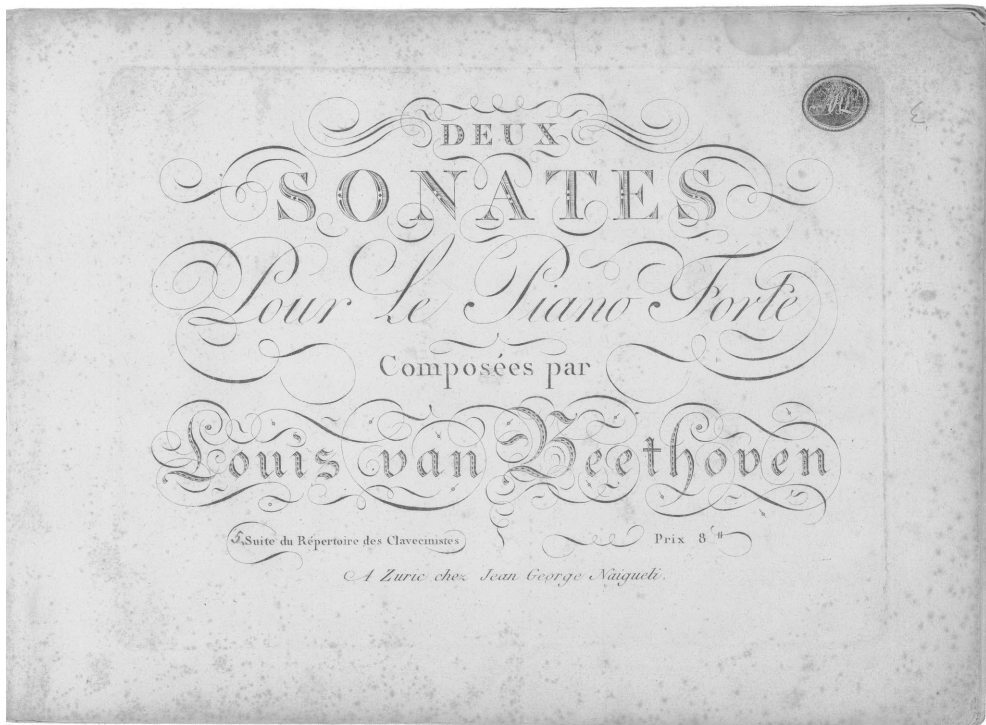 DEUX
SONATES
Pour Le Piano Forte
Composées par
Louis van Beethoven
5. Suite du Répertoire des Clavecinistes Prix 8 ₶
A Zuric chez Jean George Naigueli.